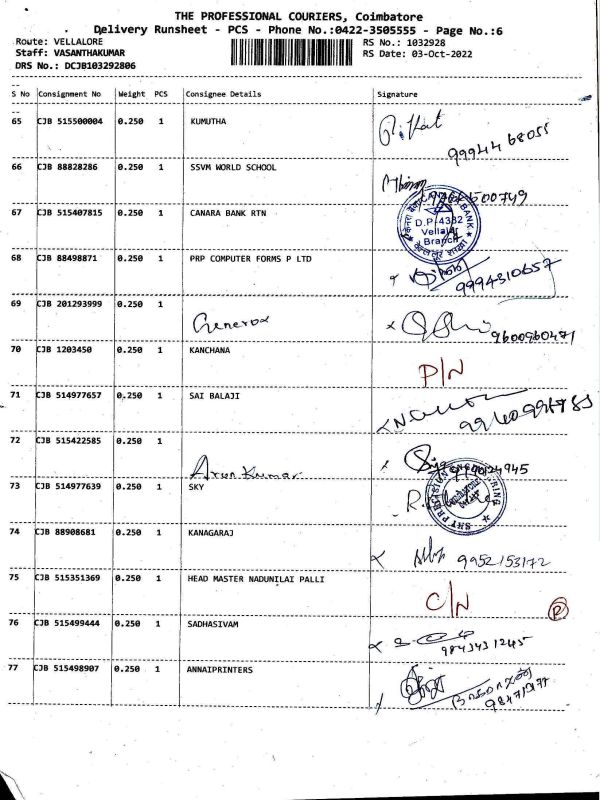 THE PROFESSIONAL COURIERS, Coimbatore
Delivery Runsheet - PCS - Phone No.:0422-3505555 - Page No.:6
Route: VELLALORE RS No.: 1032928
Staff: VASANTHAKUMAR RS Date: 03-Oct-2022
DRS No.: DCJB103292806
S No Consignment No Weight PCS Consignee Details Signature
65 CJB 515500004 0.250 1 KUMUTHA
99944 68055
66 CJB 88828286 0.250 1 SSVM WORLD SCHOOL
67 CJB 515407815 0.250 1 CANARA BANK RTN
CANARA BANK
D.P-4382
Vellalur
Branch
68 CJB 88498871 0.250 1 PRP COMPUTER FORMS P LTD
9994310657
69 CJB 201293999 0.250 1
9600960471
70 CJB 1203450 0.250 1 KANCHANA P/N
71 CJB 514977657 0.250 1 SAI BALAJI
72 CJB 515422585 0.250 1
Arun Kumar
73 CJB 514977639 0.250 1 SKY
74 CJB 88908681 0.250 1 KANAGARAJ
9952153172
75 CJB 515351369 0.250 1 HEAD MASTER NADUNILAI PALLI
C/N R
76 CJB 515499444 0.250 1 SADHASIVAM
9843431245
77 CJB 515498907 0.250 1 ANNAIPRINTERS